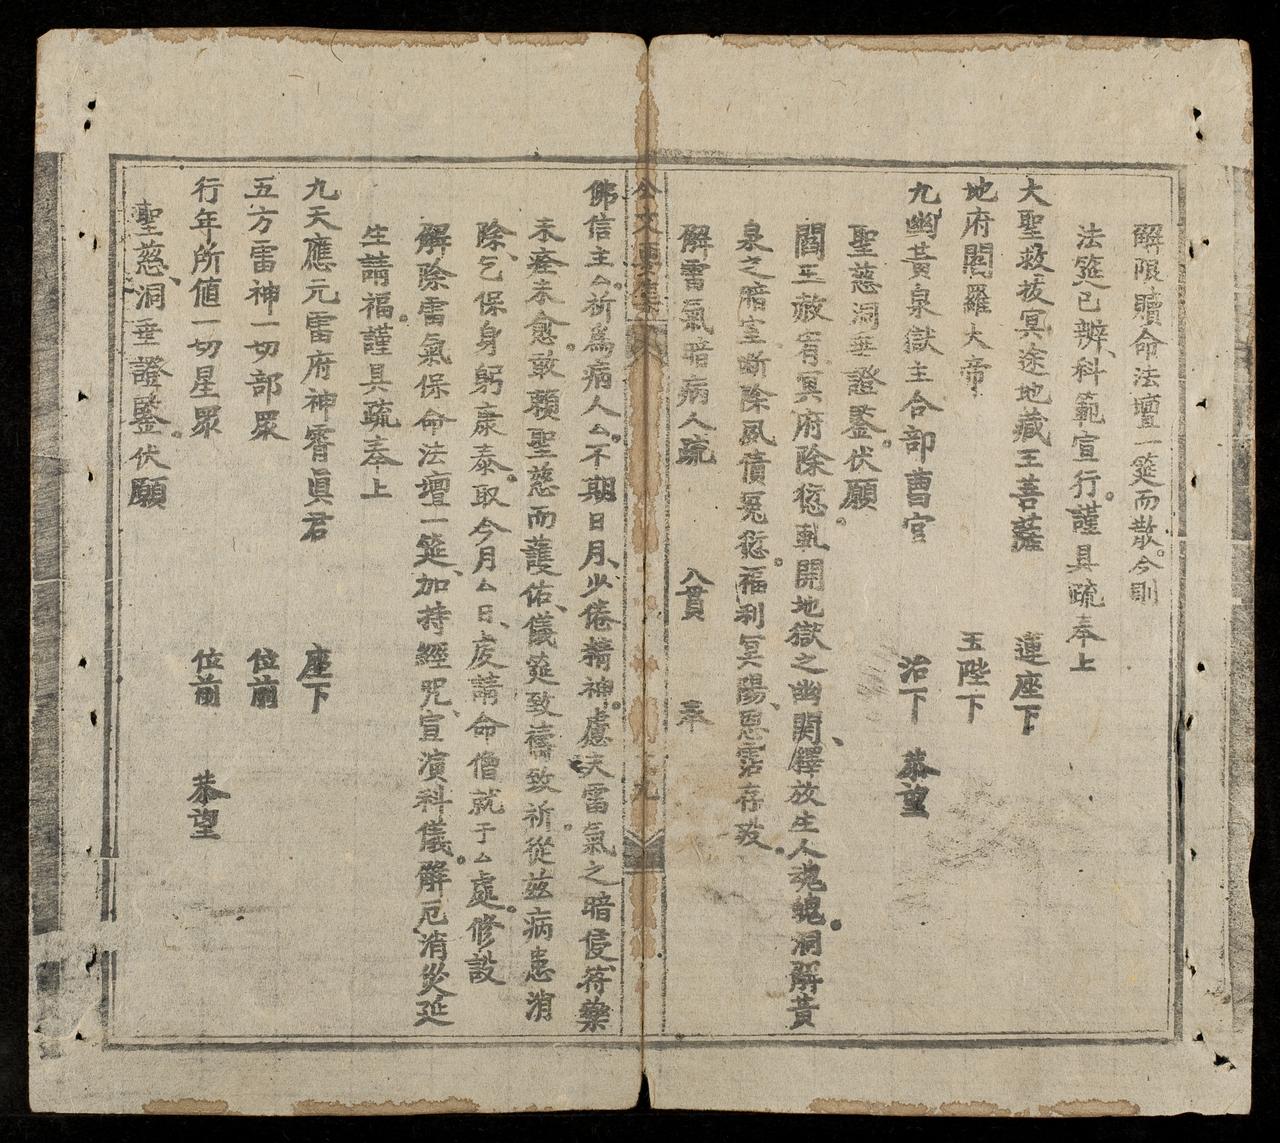 解限贖命法壇一筵而散。今則
法筵已辦、科範宣行。謹具疏奉上
大聖救拔冥途地藏王菩薩 蓮座下
地府閻羅大帝 玉陛下
九幽黃泉獄主合部曹官 治下 恭望
聖慈、洞垂證鑒。伏願
閻王赦宥、冥府除愆。軋開地獄之幽関、鐸放生人魂魄。洞解黃
泉之暗室、断除夙債冤愆。福利冥陽、恩霑存歿。
解雷氣暗病人疏 八貫 奉
公文 集 九
佛信主厶祈為病人厶。不期日月、少倦精神。慮夫雷氣之暗侵、符藥
未痊未愈。敢賴聖慈而護佑、儀筵致禱致祈。從兹病患消
除、乞保身躬康泰。取今月厶日、虔請命僧就于厶處。修設
解除雷氣保命法壇一筵、加持經咒、宣演科儀。解厄消災延
生請福。謹具疏奉上
九天應元雷府神霄眞君 座下
五方雷神一切部眾 位前
行年所値一切星眾 位前 恭望
聖慈、洞垂證鑒。伏願